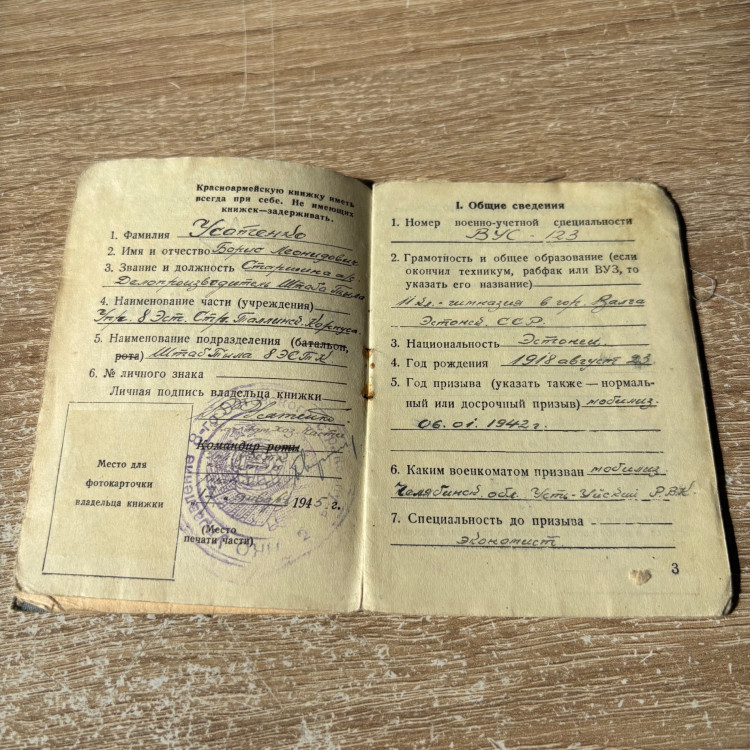 Красноармейскую книжку иметь
всегда при себе. Не имеющих
книжек—задерживать.
1. Фамилия Усотенко
2. Имя и отчество Борис Леонидович
3. Звание и должность Старшина а/с
Делопроизводитель Штаба Тыла
4. Наименование части (учреждения)
Упр. 8 Эст. Стр. Таллинск. Корпуса
5. Наименование подразделения (батальон,
рота) Штаб Тыла 8 ЭСТК
6. № личного знака
Личная подпись владельца книжки
Усатенко
Командир роты
1945 г.
(Место
печати части)
Место для
фотокарточки
владельца книжки
I. Общие сведения
1. Номер военно-учетной специальности
ВУС - 123
2. Грамотность и общее образование (если
окончил техникум, рабфак или ВУЗ, то
указать его название)
11 кл. - гимназия в гор. Валга
Эстонск. ССР.
3. Национальность Эстонец
4. Год рождения 1918 август 23
5. Год призыва (указать также — нормаль-
ный или досрочный призыв) мобилиз.
06.01.1942 г.
6. Каким военкоматом призван мобилиз
Челябинск. обл. Усть-Уйский РВК.
7. Специальность до призыва
экономист
3